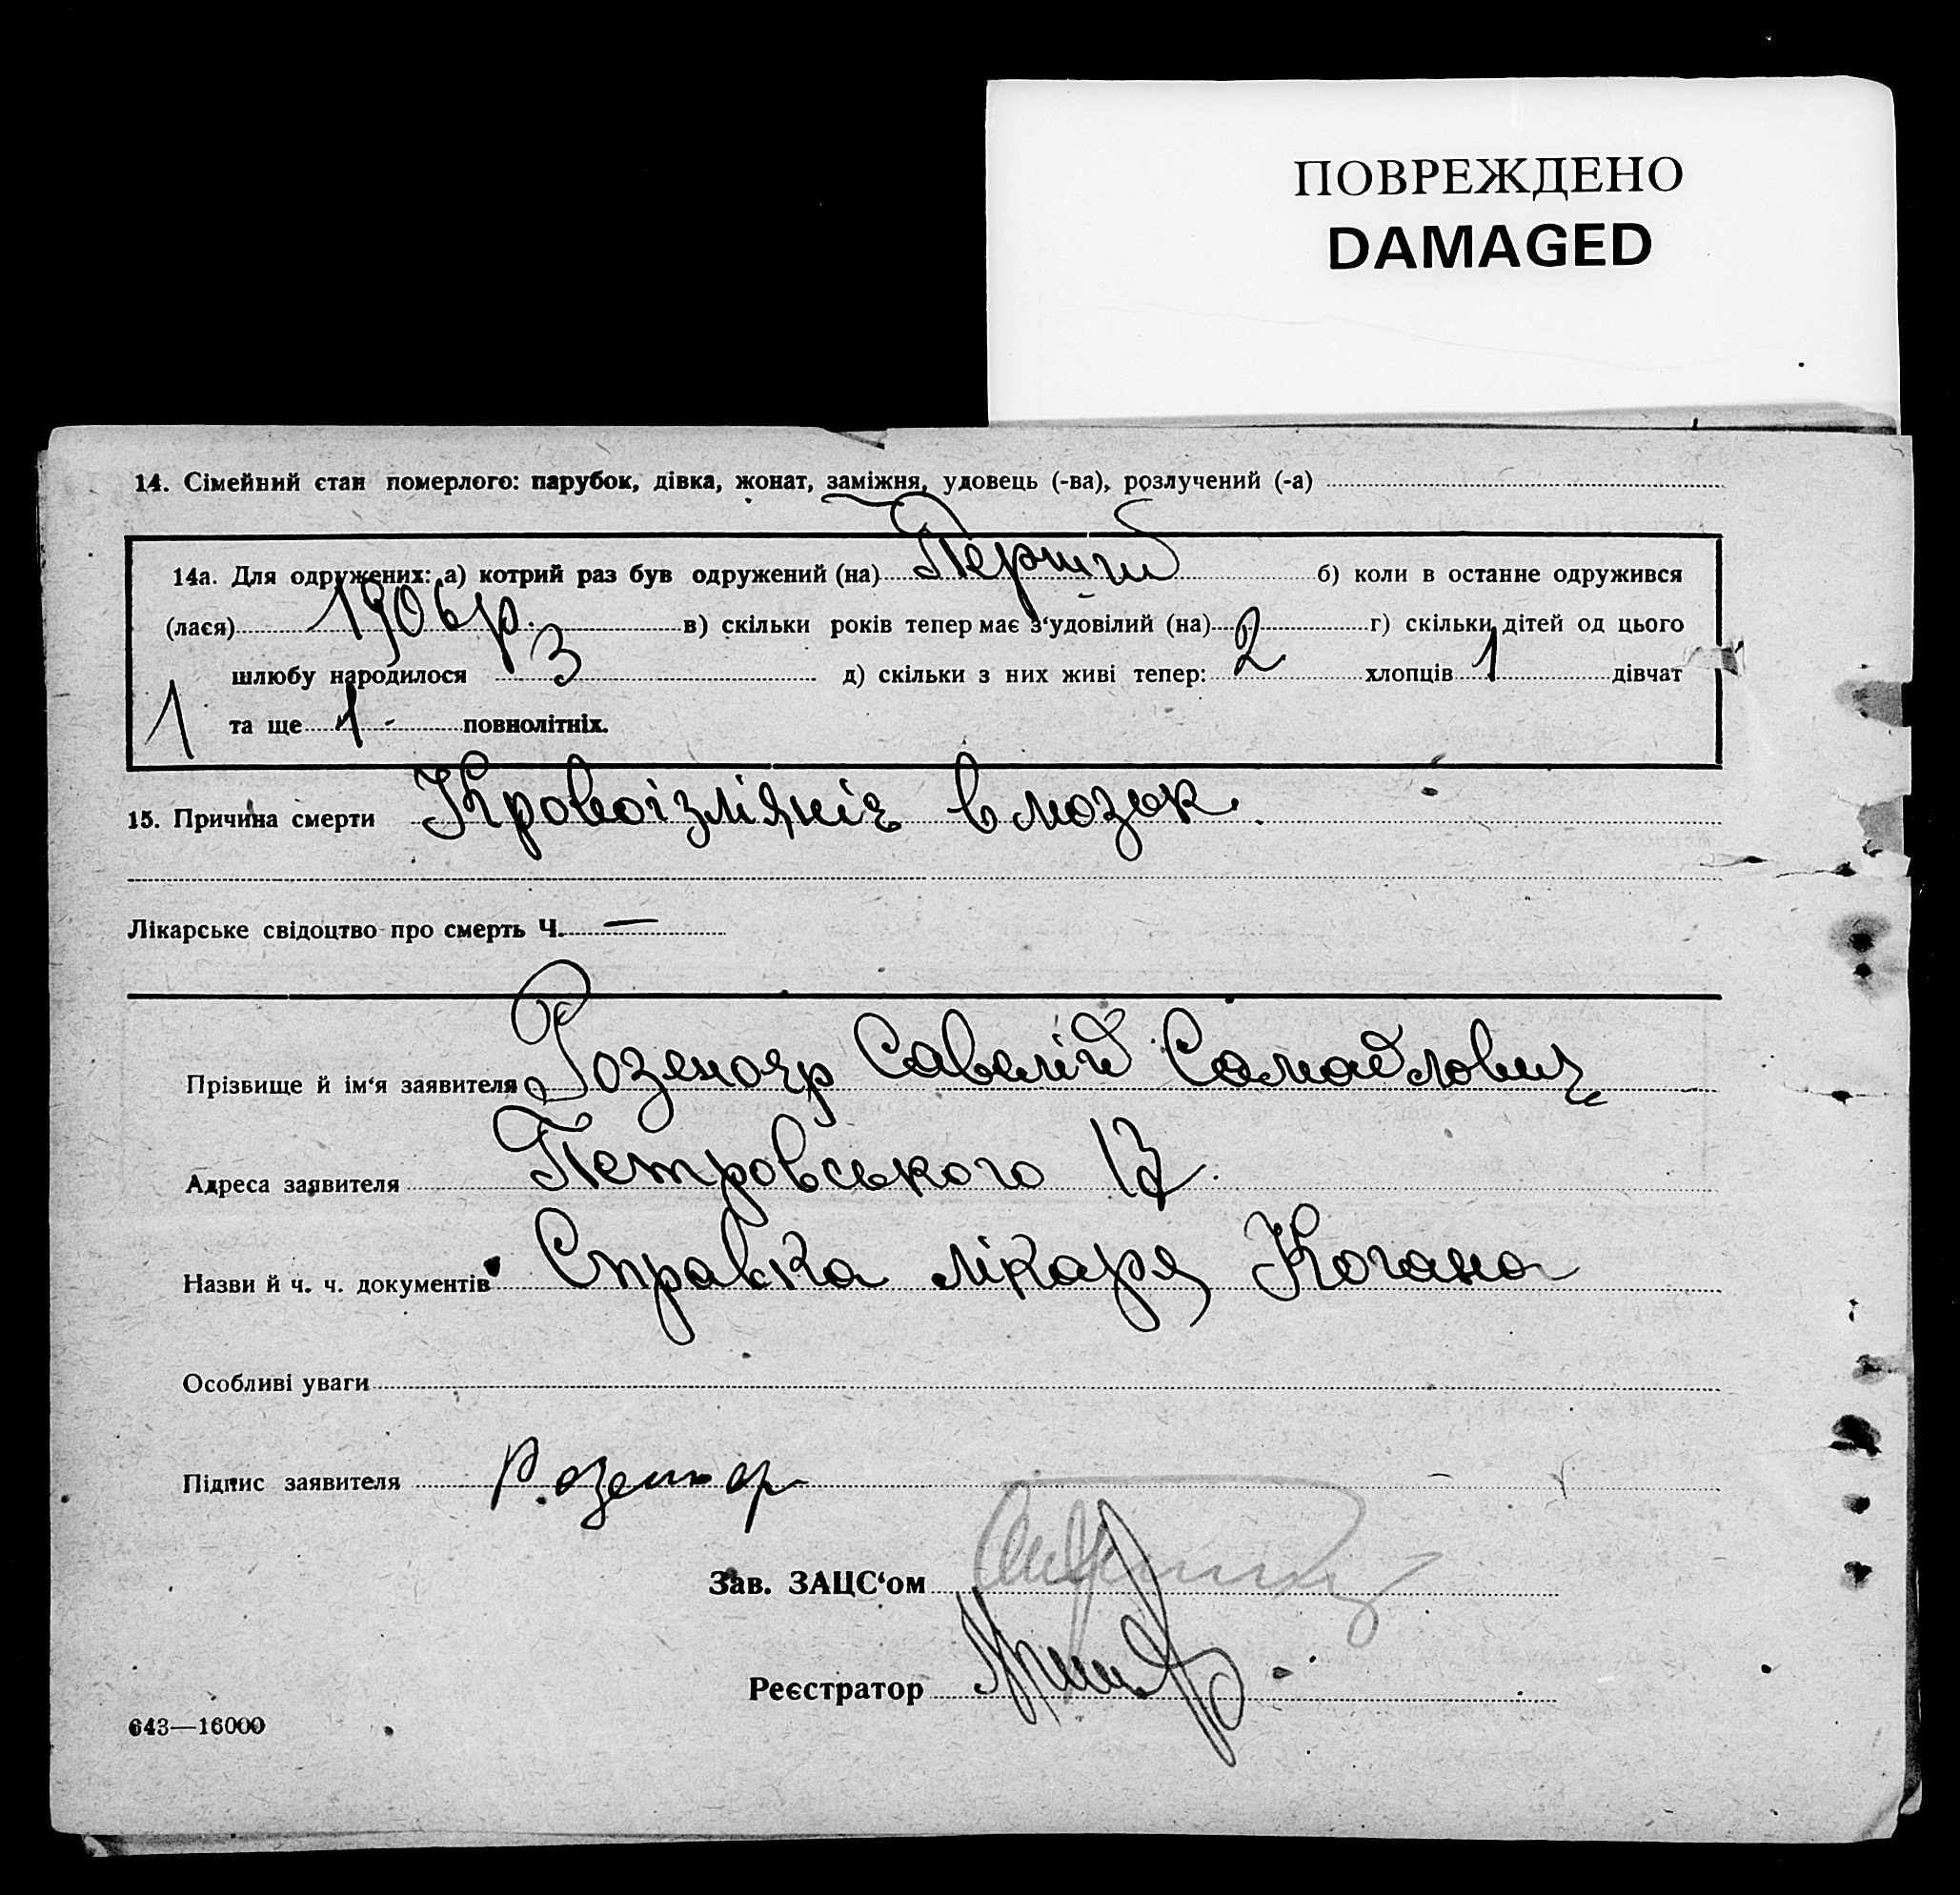 ПОВРЕЖДЕНО
DAMAGED
14. Сімейний стан померлого: парубок, дівка, жонат, заміжня, удовець (-ва), розлучений (-а)
14а. Для одружених: а) котрий раз був одружений (на) Перший б) коли в останне одружився
(лася) 1906 р. в) скільки років тепер має з'удовілий (на) 2 г) скільки дітей од цього
шлюбу народилося 3 д) скільки з них живі тепер: 2 хлопців 1 дівчат
1 та ще 1 - повнолітніх.
15. Причина смерти Кровоізліяніє в мозок.
Лікарське свідоцтво про смерть Ч. —
Прізвище й ім'я заявителя Розеноер Савелій
Адреса заявителя Петровського 17.
Назви й ч. ч. документів Справка лікаря Когана
Особливі уваги
Підпис заявителя Розеноер
Зав. ЗАЦС'ом
Реєстратор
643—16000